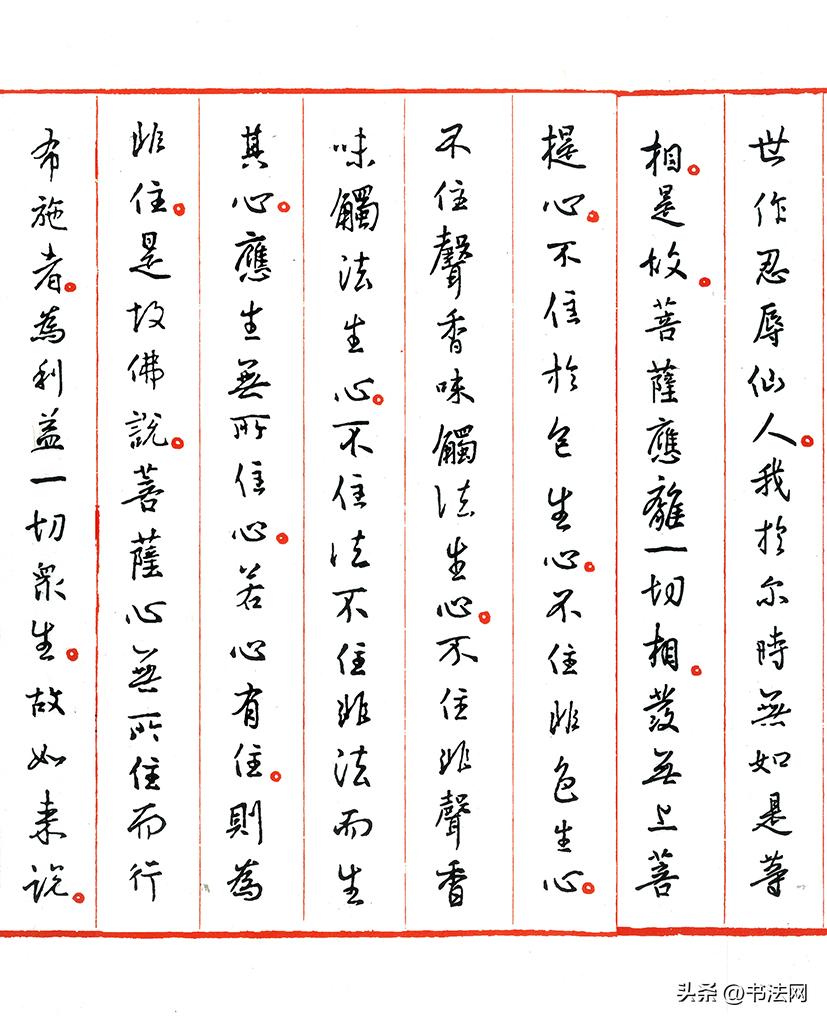 世作忍辱仙人。我於尔時無如是等
相。是故。菩薩應離一切相。發無上菩
提心。不住於色生心。不住非色生心。
不住聲香味觸法生心。不住非聲香
味觸法生心。不住法不住非法而生
其心。應生無所住心。若心有住。則為
非住。是故佛說。菩薩心無所住而行
布施者。為利益一切衆生。故如来说。
头条 @书法网